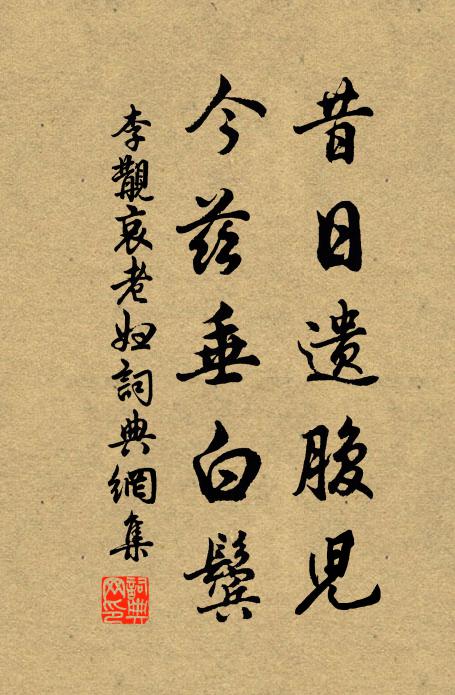 昔日遺腹兒
今茲垂白鬢
李覯哀老婦詞典網集
詞典网印